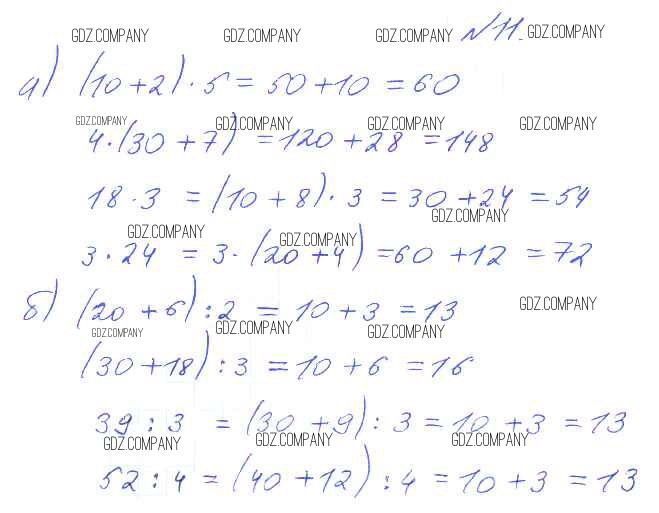 GDZ.COMPANY GDZ.COMPANY GDZ.COMPANY №11. GDZ.COMPANY
а) (10+2)·5=50+10=60
GDZ.COMPANY GDZ.COMPANY GDZ.COMPANY GDZ.COMPANY
4·(30+7)=120+28=148
18·3=(10+8)·3=30+24=54
GDZ.COMPANY
GDZ.COMPANY GDZ.COMPANY
3·24=3·(20+4)=60+12=72
б) (20+6):2=10+3=13
GDZ.COMPANY
GDZ.COMPANY GDZ.COMPANY GDZ.COMPANY
(30+18):3=10+6=16
39:3=(30+9):3=10+3=13
GDZ.COMPANY GDZ.COMPANY GDZ.COMPANY
52:4=(40+12):4=10+3=13